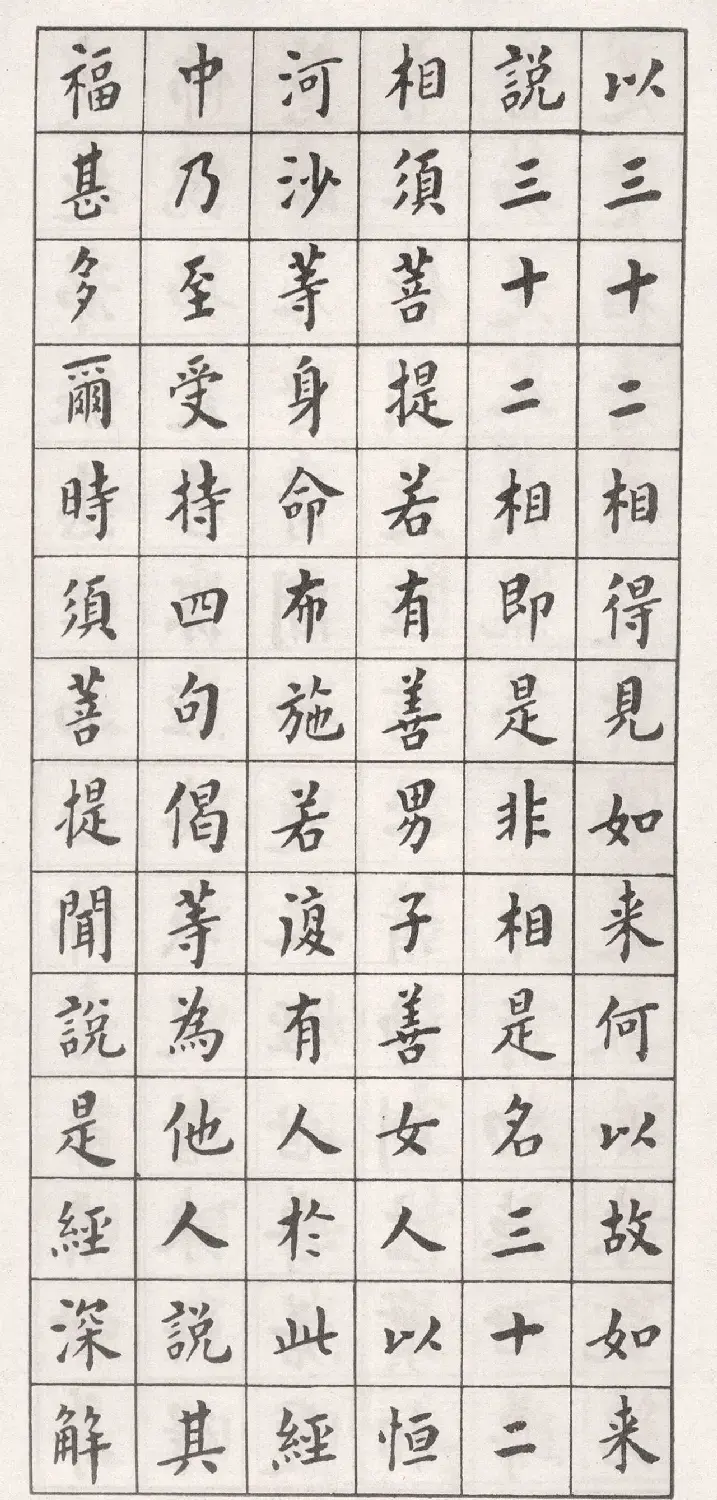 以三十二相得見如来何以故如来
說三十二相即是非相是名三十二
相須菩提若有善男子善女人以恒
河沙等身命布施若復有人於此經
中乃至受持四句偈等為他人說其
福甚多爾時須菩提聞說是經深解